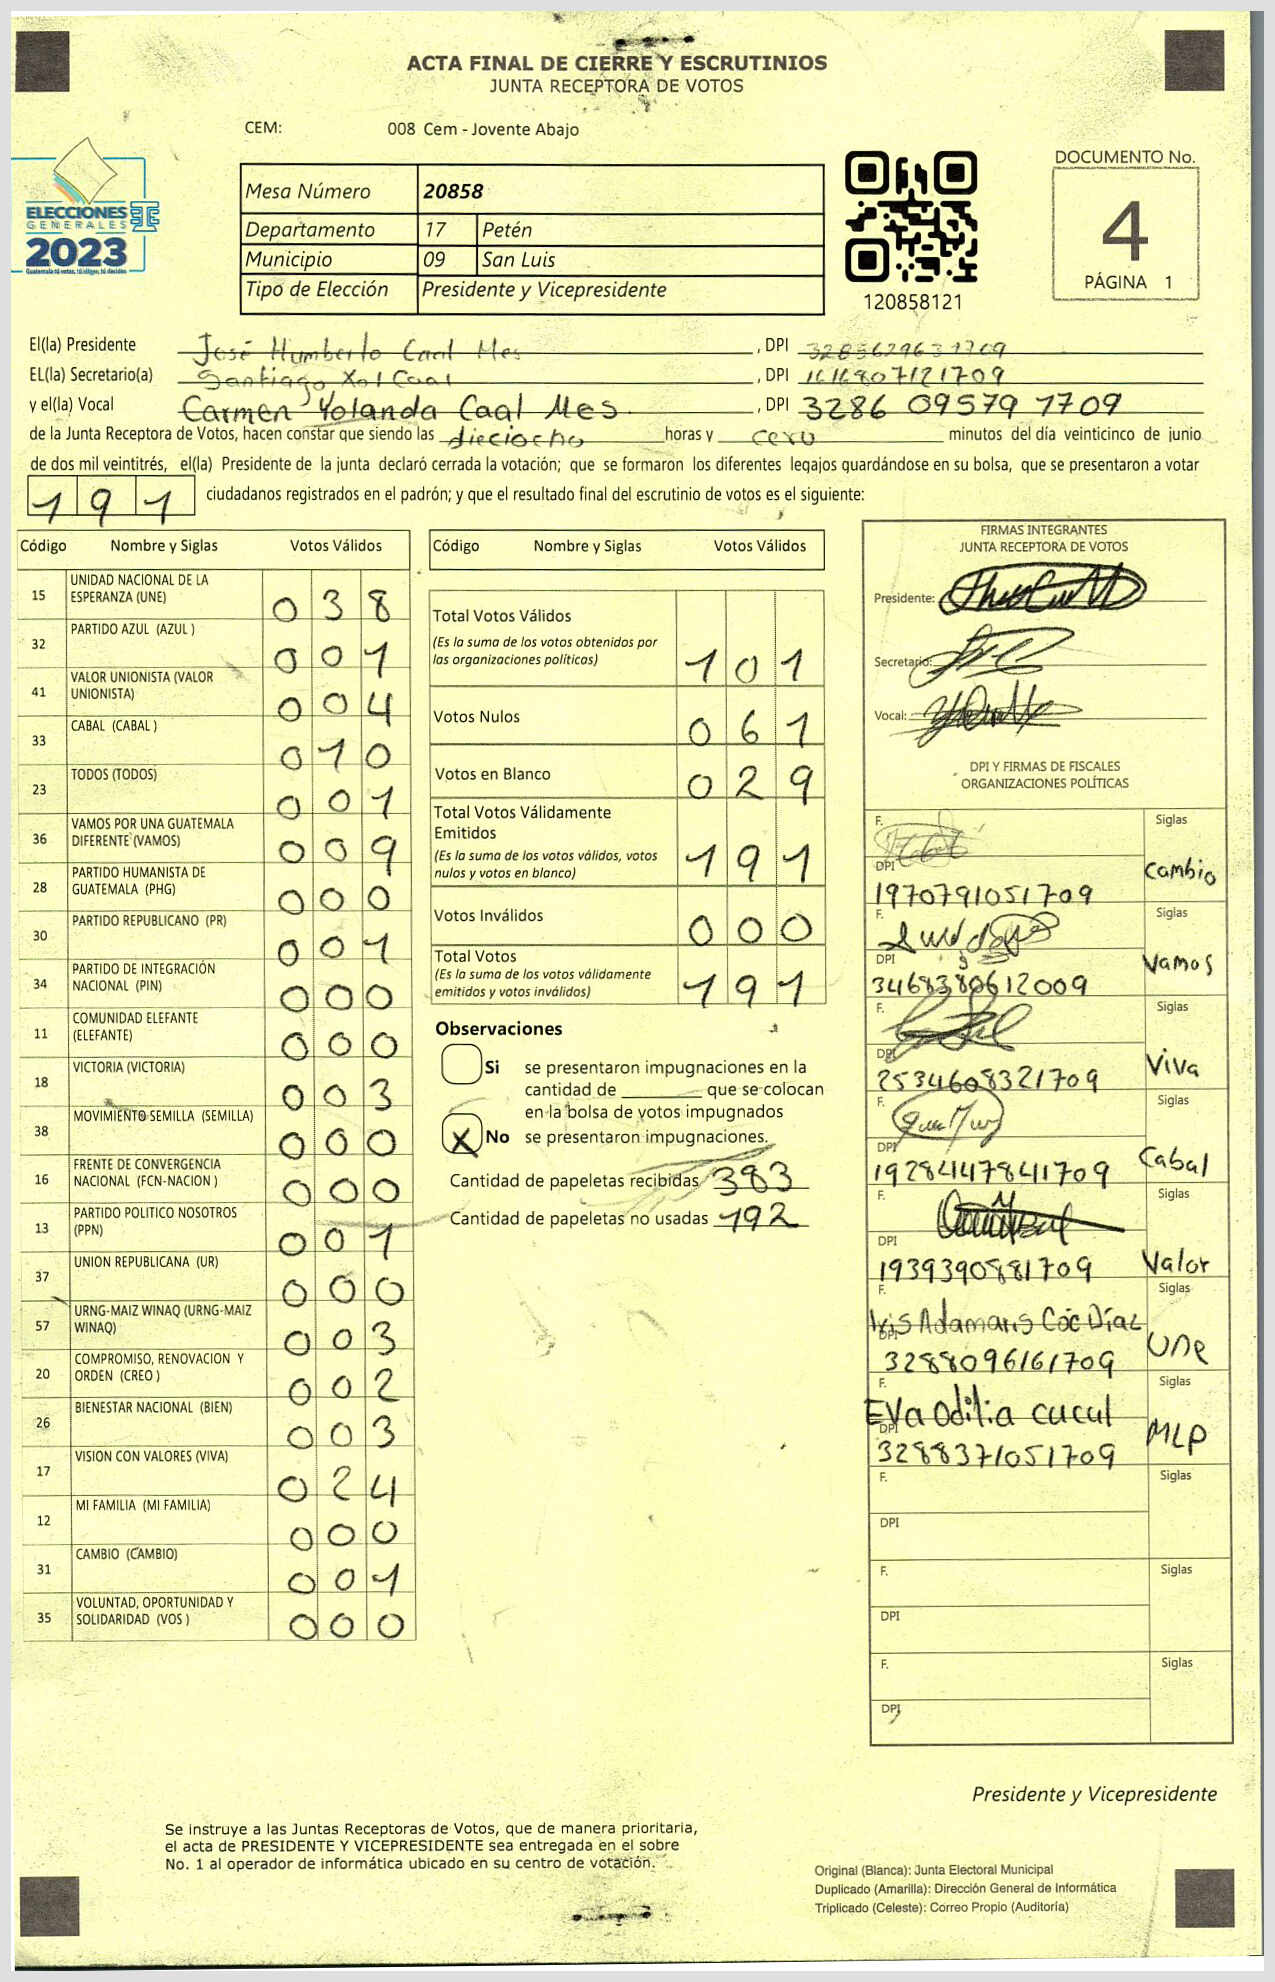 ACTA FINAL DE CIERRE Y ESCRUTINIOS
JUNTA RECEPTORA DE VOTOS
CEM: 008 Cem - Jovente Abajo
ELECCIONES
GENERALES
2023
Guatemala tú votas, tú eliges, tú decides
Mesa Número 20858
Departamento 17 Petén
Municipio 09 San Luis
Tipo de Elección Presidente y Vicepresidente
120858121
DOCUMENTO No.
4
PÁGINA 1
El(la) Presidente José Humberto Caal Mes , DPI 3285629631709
EL(la) Secretario(a) Santiago Xol Caal , DPI 1616807121709
y el(la) Vocal Carmen Yolanda Caal Mes. , DPI 3286 09579 1709
de la Junta Receptora de Votos, hacen constar que siendo las dieciocho horas y cero minutos del día veinticinco de junio
de dos mil veintitrés, el(la) Presidente de la junta declaró cerrada la votación; que se formaron los diferentes legajos guardándose en su bolsa, que se presentaron a votar
191 ciudadanos registrados en el padrón; y que el resultado final del escrutinio de votos es el siguiente:
Código Nombre y Siglas Votos Válidos
15 UNIDAD NACIONAL DE LA ESPERANZA (UNE) 038
32 PARTIDO AZUL (AZUL ) 001
41 VALOR UNIONISTA (VALOR UNIONISTA) 004
33 CABAL (CABAL ) 010
23 TODOS (TODOS) 001
36 VAMOS POR UNA GUATEMALA DIFERENTE (VAMOS) 009
28 PARTIDO HUMANISTA DE GUATEMALA (PHG) 000
30 PARTIDO REPUBLICANO (PR) 001
34 PARTIDO DE INTEGRACIÓN NACIONAL (PIN) 000
11 COMUNIDAD ELEFANTE (ELEFANTE) 000
18 VICTORIA (VICTORIA) 003
38 MOVIMIENTO SEMILLA (SEMILLA) 000
16 FRENTE DE CONVERGENCIA NACIONAL (FCN-NACION ) 000
13 PARTIDO POLITICO NOSOTROS (PPN) 001
37 UNION REPUBLICANA (UR) 000
57 URNG-MAIZ WINAQ (URNG-MAIZ WINAQ) 003
20 COMPROMISO, RENOVACION Y ORDEN (CREO ) 002
26 BIENESTAR NACIONAL (BIEN) 003
17 VISION CON VALORES (VIVA) 024
12 MI FAMILIA (MI FAMILIA) 000
31 CAMBIO (CAMBIO) 001
35 VOLUNTAD, OPORTUNIDAD Y SOLIDARIDAD (VOS ) 000
Código Nombre y Siglas Votos Válidos
Total Votos Válidos 101
(Es la suma de los votos obtenidos por
las organizaciones políticas)
Votos Nulos 061
Votos en Blanco 029
Total Votos Válidamente
Emitidos 191
(Es la suma de los votos válidos, votos
nulos y votos en blanco)
Votos Inválidos 000
Total Votos 191
(Es la suma de los votos válidamente
emitidos y votos inválidos)
Observaciones
Si se presentaron impugnaciones en la
cantidad de ________ que se colocan
en la bolsa de votos impugnados
X No se presentaron impugnaciones.
Cantidad de papeletas recibidas 383
Cantidad de papeletas no usadas 192
FIRMAS INTEGRANTES
JUNTA RECEPTORA DE VOTOS
Presidente:
Secretario:
Vocal:
DPI Y FIRMAS DE FISCALES
ORGANIZACIONES POLÍTICAS
F. Siglas
DPI Cambio
1970791051709
F. Siglas
DPI Vamos
3468380612009
F. Siglas
DPI Viva
2534608321709
F. Siglas
DPI Cabal
1928447841709
F. Siglas
DPI Valor
1939390881709
F. Siglas
Iris Adamaris Coc Díaz
DPI UNe
3288096161709
F. Siglas
Eva Odilia cucul
DPI MLP
3288371051709
F. Siglas
DPI
F. Siglas
DPI
F. Siglas
DPI
Presidente y Vicepresidente
Se instruye a las Juntas Receptoras de Votos, que de manera prioritaria,
el acta de PRESIDENTE Y VICEPRESIDENTE sea entregada en el sobre
No. 1 al operador de informática ubicado en su centro de votación.
Original (Blanca): Junta Electoral Municipal
Duplicado (Amarilla): Dirección General de Informática
Triplicado (Celeste): Correo Propio (Auditoría)